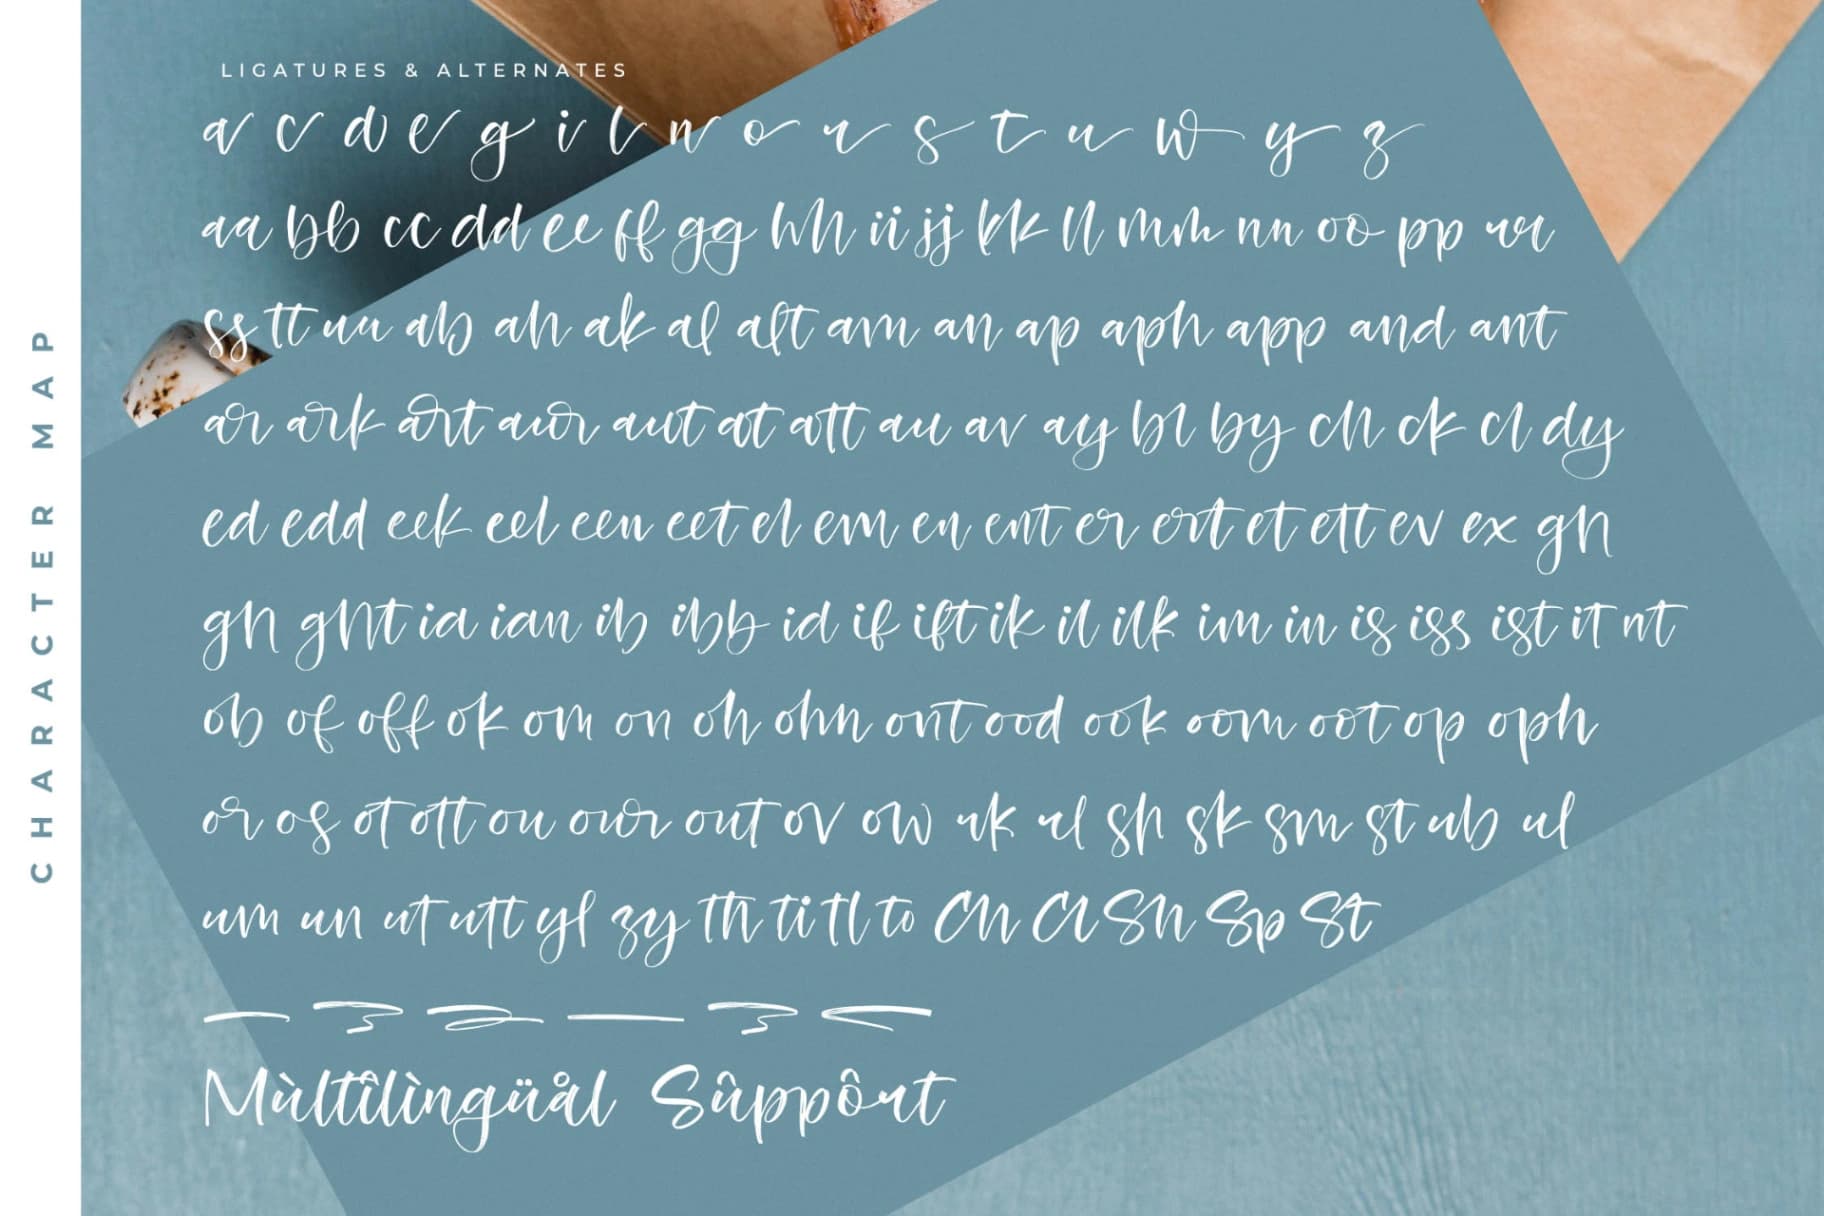 CHARACTER MAP
LIGATURES & ALTERNATES
a c d e g i l n o r s t u w y z
aa bb cc dd ee ff gg hh ii jj kk ll mm nn oo pp rr
ss tt uu ab ah ak al alt am an ap aph app and ant
ar ark art aur aut at att au av ay bl by ch ck cl dy
ed edd eek eel een eet el em en ent er ert et ett ev ex gh
gh ght ia ian ib ibb id if ift ik il ilk im in is iss ist it nt
ob of off ok om on oh ohn ont ood ook oom oot op oph
or os ot ott ou our out ov ow rk rl sh sk sm st ub ul
um un ut utt yl zy th ti tl to Ch Cl Sh Sp St
Mùltîlìngüål Sûppôrt